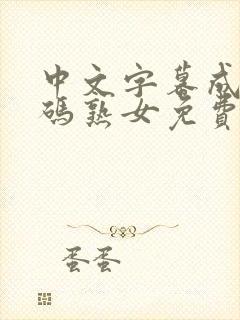 中文字幕成
码熟女免費
蛋蛋